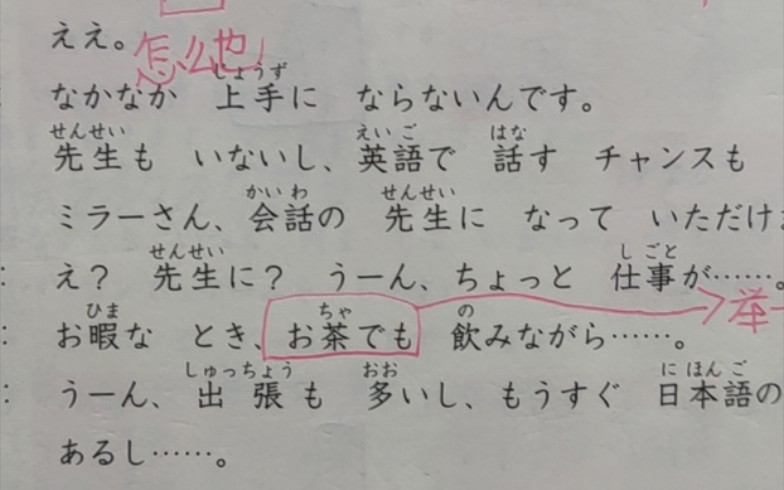 ええ。
怎么也
じょうず
なかなか 上手に ならないんです。
せんせい えいご はな
先生も いないし、英語で 話す チャンスも
かいわ せんせい
ミラーさん、会話の 先生に なって いただけ
せんせい しごと
: え? 先生に? うーん、ちょっと 仕事が……。
ひま ちゃ の
: お暇な とき、お茶でも 飲みながら……。 举一
しゅっちょう おお にほんご
: うーん、出張も 多いし、もうすぐ 日本語の
あるし……。